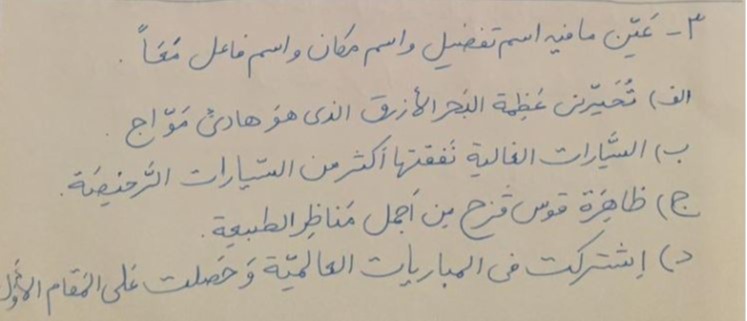 ٣- عَيِّن ما فيه اسم تفضيل و اسم مكان و اسم فاعل مَعَاً.
الف) تُحَيِّرني عَظِمة البَحر الأزرق الذى هو هادئ مَوّاج.
ب) السَّيارات الغالية نَفَقتها أكثر من السّيارات الرَّخيصَة.
ج) ظاهِرَة قوس قُزح مِن أجمل مَناظِر الطبيعة.
د) إشتركت فى المباريات العالميّة وَ حَصلت عَلى المَقام الأوّل